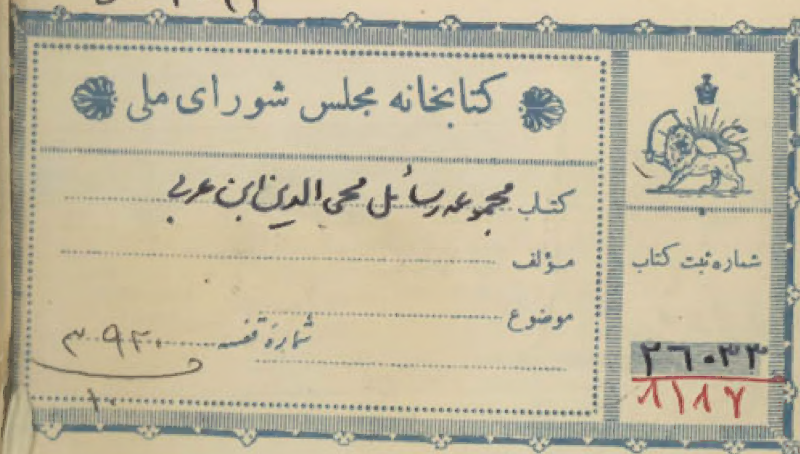 کتابخانه مجلس شورای ملی
کتاب مجموعه رسائل محی الدین ابن عربی
مؤلف
موضوع
شماره قفسه ۳۹۴۰
۱۰
شماره ثبت کتاب
۲۶۰۳۳
۸۱۸۷